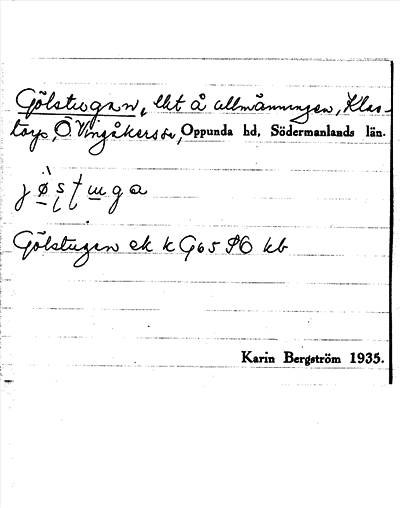 Gölstugan, lht å allmänningen, Klas-
torp, Ö Vingåkers sn, Oppunda hd, Södermanlands län.
Gölstugan ek k G65 SO kb
Karin Bergström 1935.